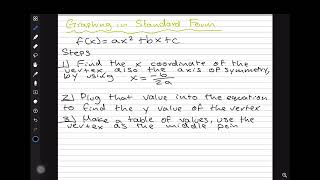 Graphing in Standard Form
f(x) = ax² + bx + c
Steps
1) Find the x coordinate of the
vertex, also the axis of symmetry,
by using x = -b/2a
2) Plug that value into the equation
to find the y value of the vertex
3) Make a table of values, use the
vertex as the middle